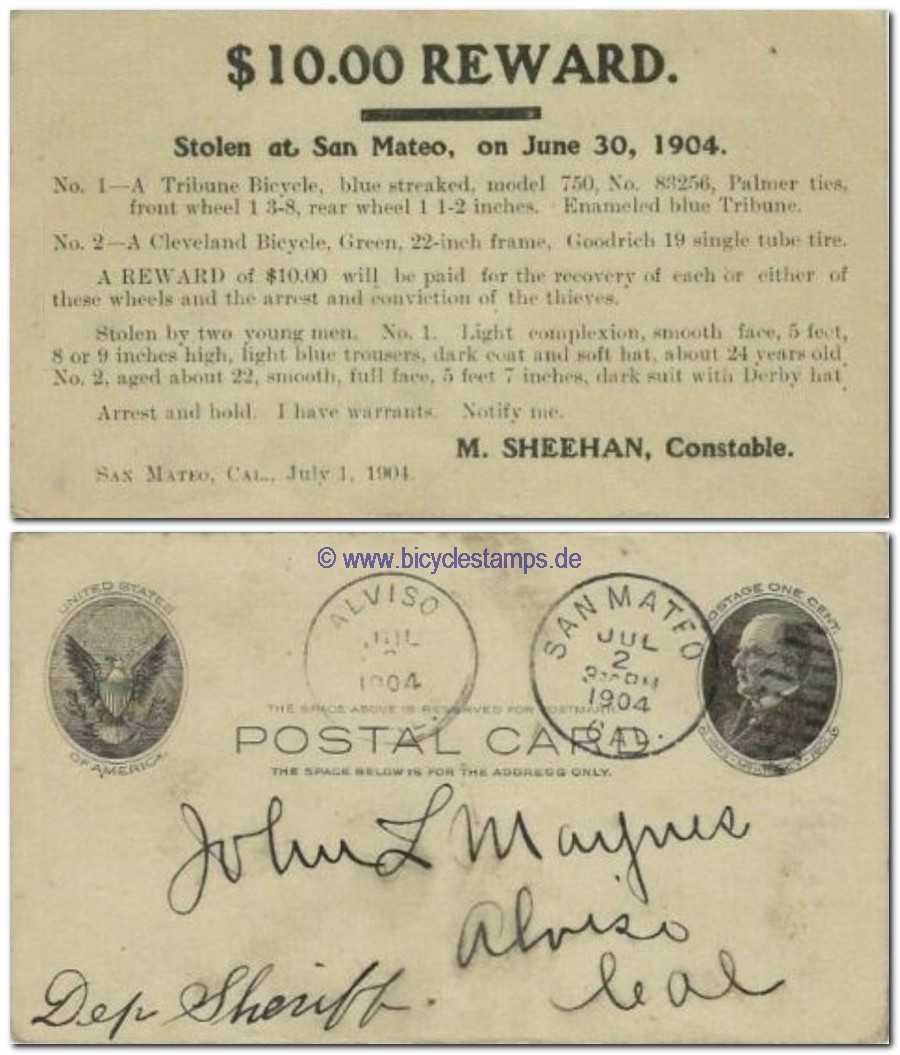 $10.00 REWARD.
Stolen at San Mateo, on June 30, 1904.
No. 1—A Tribune Bicycle, blue streaked, model 750, No. 83256, Palmer ties,
front wheel 1 3-8, rear wheel 1 1-2 inches. Enameled blue Tribune.
No. 2—A Cleveland Bicycle, Green, 22-inch frame, Goodrich 19 single tube tire.
A REWARD of $10.00 will be paid for the recovery of each or either of
these wheels and the arrest and conviction of the thieves.
Stolen by two young men. No. 1. Light complexion, smooth face, 5 feet,
8 or 9 inches high, light blue trousers, dark coat and soft hat, about 24 years old
No. 2, aged about 22, smooth, full face, 5 feet 7 inches, dark suit with Derby hat
Arrest and hold. I have warrants. Notify me.
M. SHEEHAN, Constable.
SAN MATEO, CAL., July 1, 1904.
© www.bicyclestamps.de
UNITED STATES
OF AMERICA
ALVISO
JUL
1904
SAN MATEO
JUL
2
1904
CAL.
POSTAGE ONE CENT
THE SPACE ABOVE IS RESERVED FOR POSTMARK
POSTAL CARD.
THE SPACE BELOW IS FOR THE ADDRESS ONLY.
John L Maynes
Alviso
Cal
Dep Sheriff.